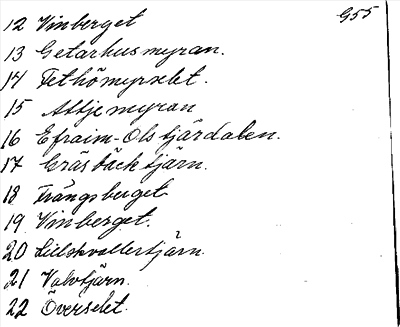 955
12 Vinberget
13 Getarhusmyran.
14 Fethömyrselet.
15 Attjemyran
16 Efraim-Olstjärdalen.
17 Gräsbäcktjärn.
18 Trångsberget
19 Vinberget.
20 Lillskvallertjärn.
21 Valvtjärn.
22 Överselet.